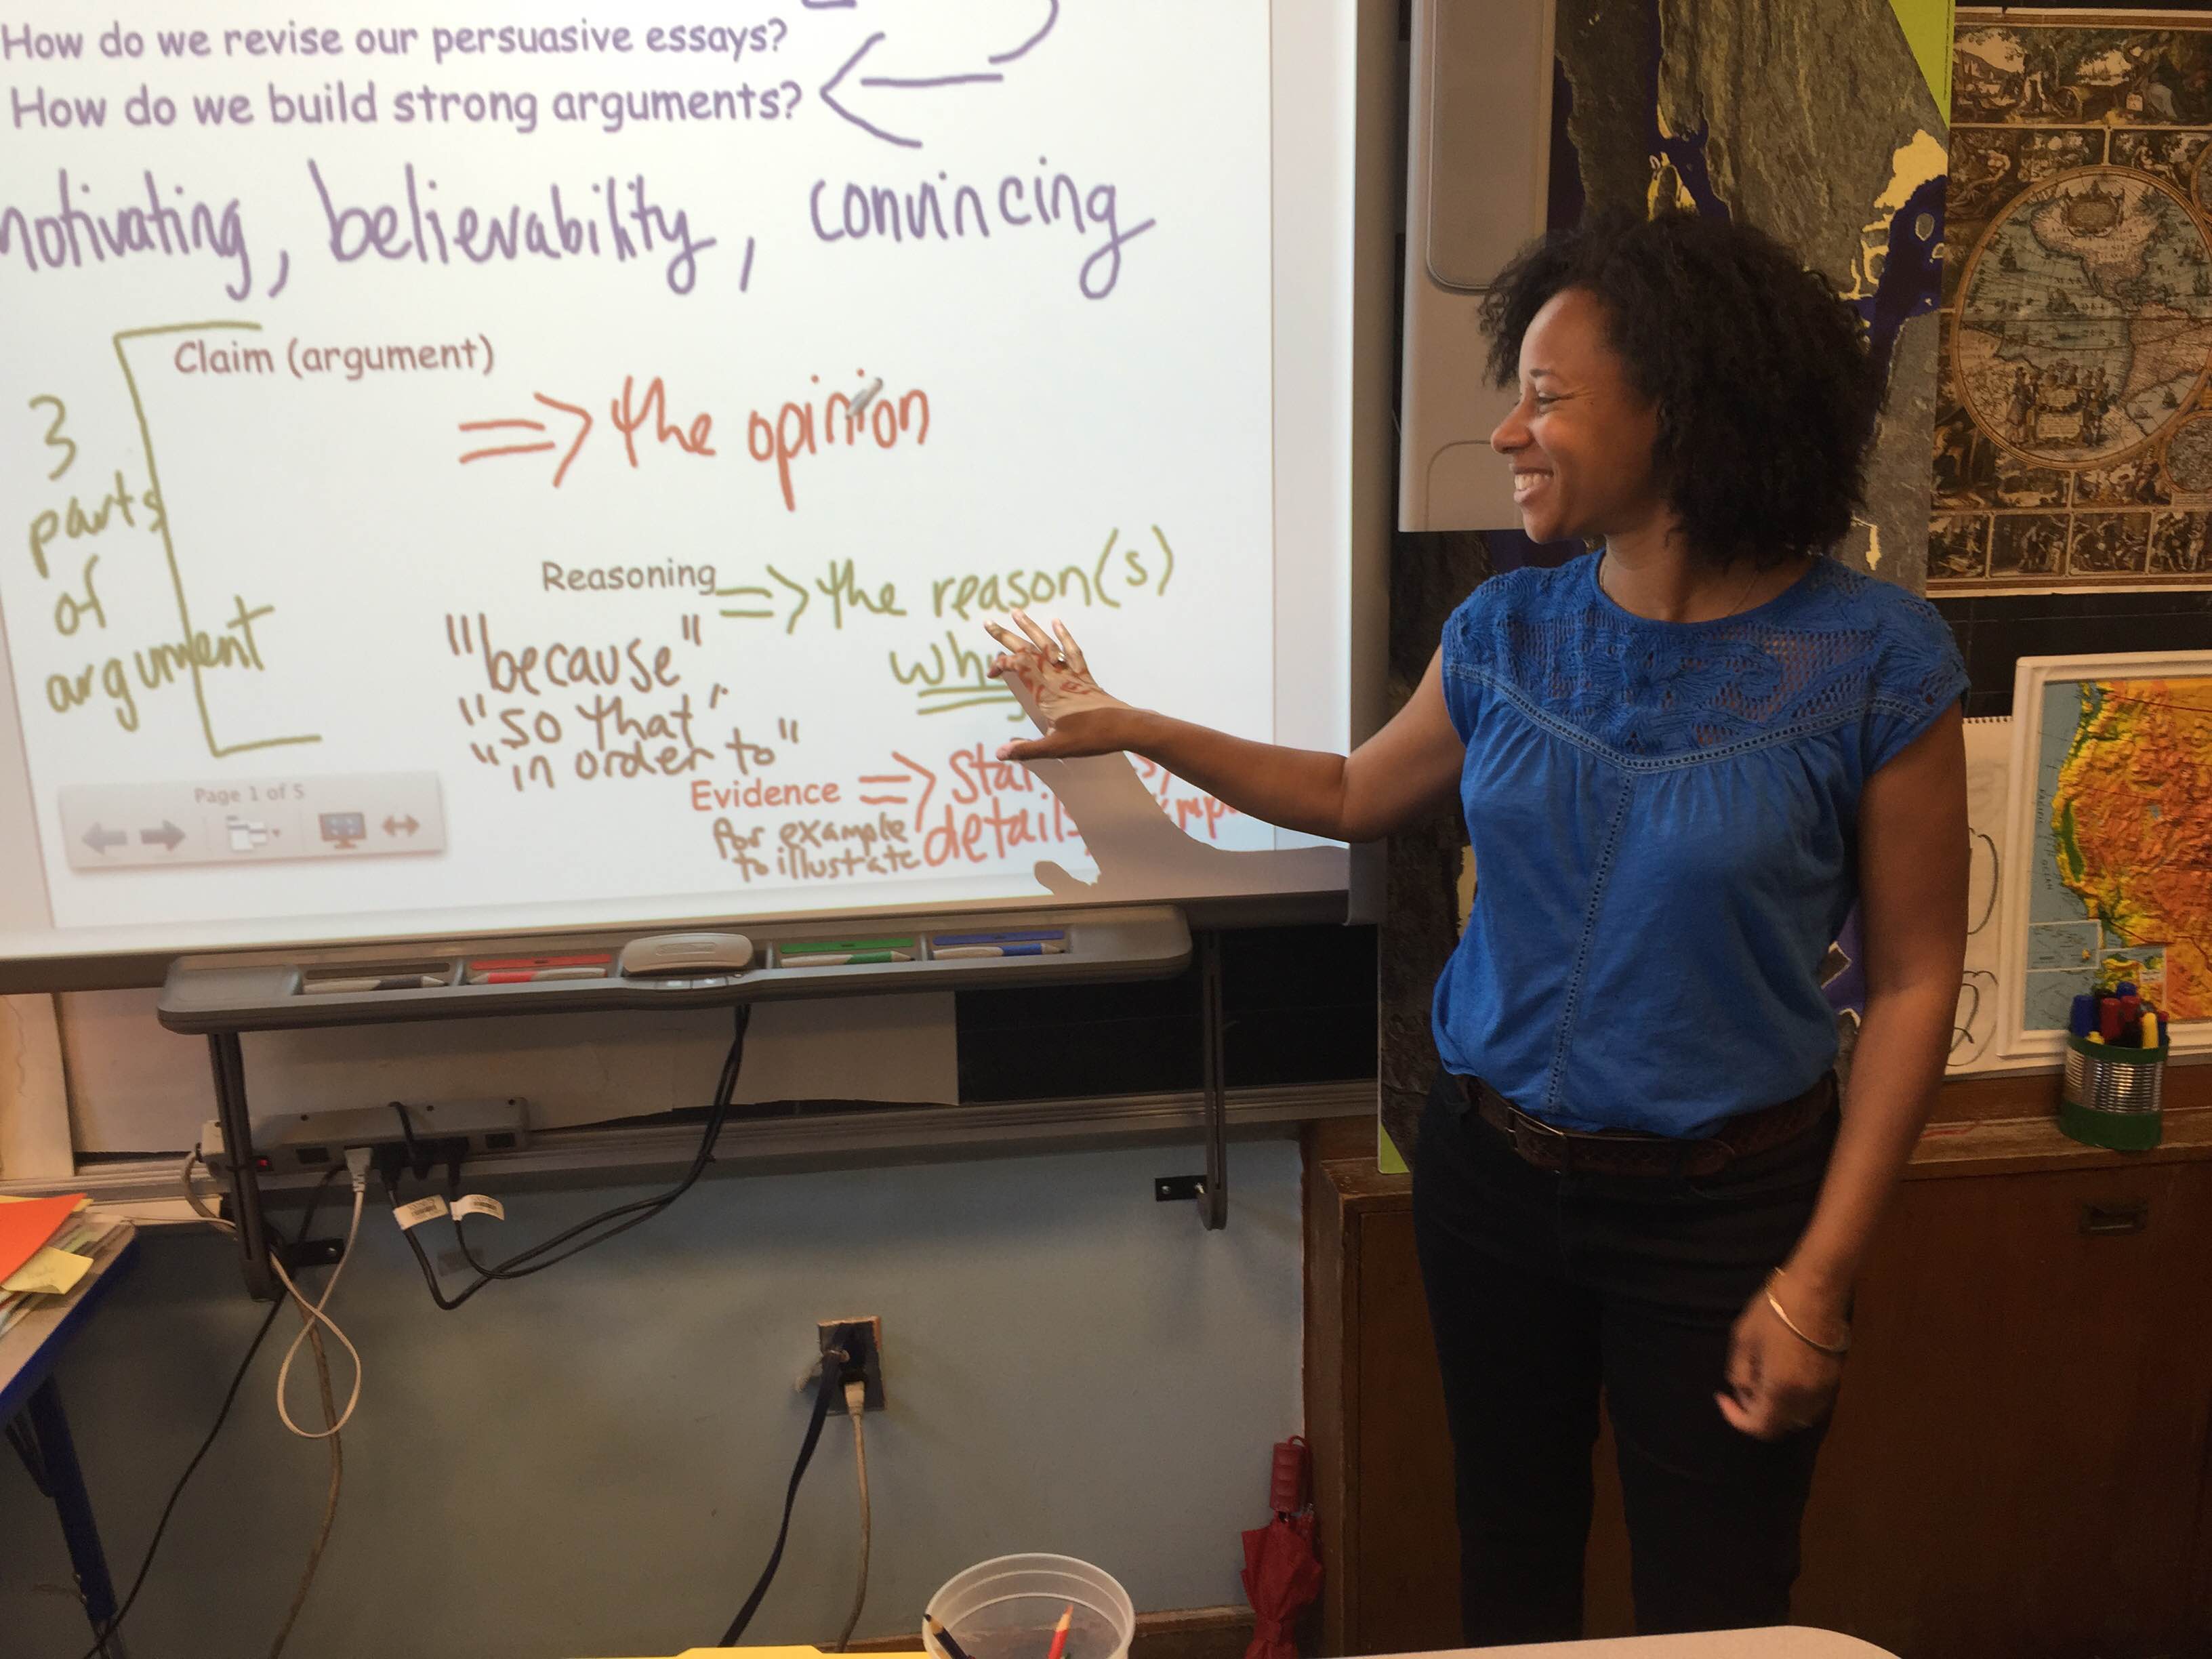 How do we revise our persuasive essays?
How do we build strong arguments?
believability, convincing
Claim (argument)
=> the opinion
3
parts
of
argument
Reasoning => the reason(s)
"because"
"so that"
"in order to"
Evidence =>
for example details,
to illustrate
Page 1 of 5